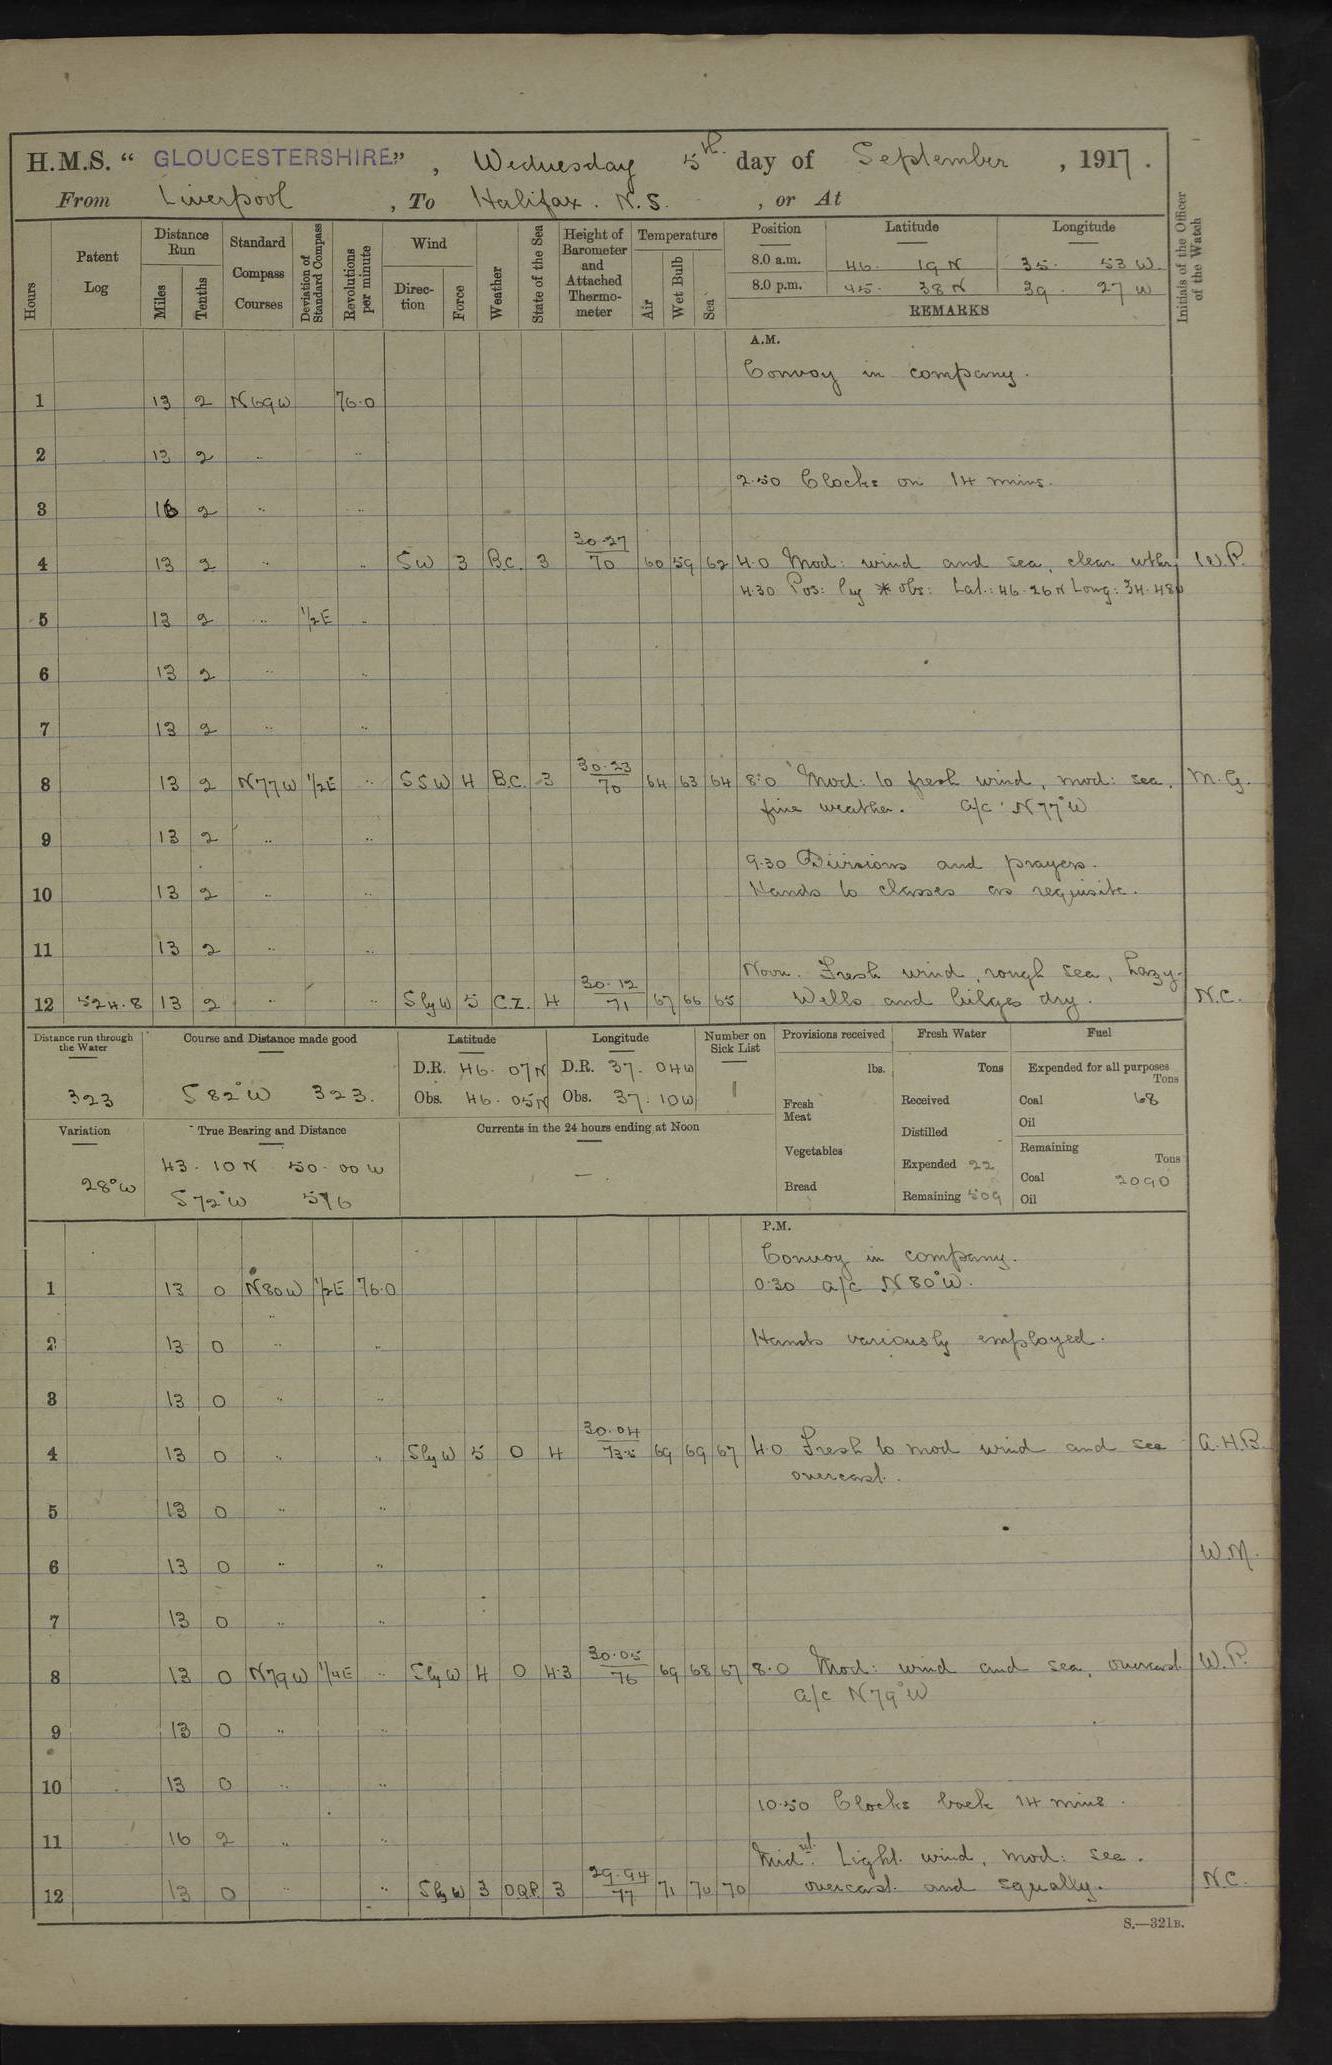 H.M.S. “ GLOUCESTERSHIRE ” , Wednesday 5th day of September , 1917 .
From Liverpool , To Halifax . N.S. , or At
Hours
Patent Log
Distance Run
Miles
Tenths
Standard Compass Courses
Deviation of Standard Compass
Revolutions per minute
Wind
Direction
Force
Weather
State of the Sea
Height of Barometer and Attached Thermometer
Temperature
Air
Wet Bulb
Sea
Position Latitude Longitude
8.0 a.m. 46. 19 N 35. 53 W.
8.0 p.m. 45. 38 N 39. 27 W
REMARKS
Initials of the Officer of the Watch
A.M.
Convoy in company.
1 13 2 N69W 76.0
2 13 2 " "
2.50 Clocks on 14 mins.
3 2 " "
4 13 2 " " SW 3 B.C. 3 30.27/70 60 59 62 4.0 Mod: wind and sea, clear wthr W.P.
4.30 Pos: by * obs: Lat.: 46.26N Long: 34.48W
5 13 2 " 1/2E "
6 13 2 " "
7 13 2 " "
8 13 2 N77W 1/2E " SSW 4 B.C. 3 30.23/70 64 63 64 8.0 Mod: to fresh wind, mod: sea, M.G.
fine weather. a/c N77°W
9 13 2 " "
9.30 Divisions and prayers.
10 13 2 " " Hands to classes as requisite.
11 13 2 " "
Noon. Fresh wind, rough sea, hazy.
12 524.8 13 2 " " SbyW 5 C.Z. 4 30.12/71 67 66 65 Wells and bilges dry. N.C.
Distance run through the Water
323
Course and Distance made good
S 82°W 323.
Latitude
D.R. 46. 07N
Obs. 46. 05N
Longitude
D.R. 37. 04W
Obs. 37. 10W
Number on Sick List
Provisions received
lbs.
Fresh Meat
Vegetables
Bread
Fresh Water
Tons
Received
Distilled
Expended 22
Remaining 509
Fuel
Expended for all purposes
Tons
Coal 68
Oil
Remaining
Tons
Coal 2090
Oil
Variation
28°W
True Bearing and Distance
43. 10 N 50. 00 W
S 72°W 576
Currents in the 24 hours ending at Noon
—.
P.M.
Convoy in company.
1 13 0 N80W 1/2E 76.0 0.30 a/c N80°W.
2 13 0 " " Hands variously employed.
3 13 0 " "
4 13 0 " " SbyW 5 O 4 30.04/73.5 69 69 67 4.0 Fresh to mod wind and sea A.H.B.
overcast.
5 13 0 " "
6 13 0 " " W.M.
7 13 0 " "
8 13 0 N79W 1/4E " SbyW 4 O 4.3 30.05/76 69 68 67 8.0 Mod: wind and sea, overcast. W.P.
a/c N79°W
9 13 0 " "
10 13 0 " "
10.50 Clocks back 14 mins.
11 16 2 " "
Midnt. Light wind, mod: sea.
12 13 0 " " SbyW 3 O.Q.P. 3 29.94/77 71 70 70 overcast and squally. N.C.
S.—321B.